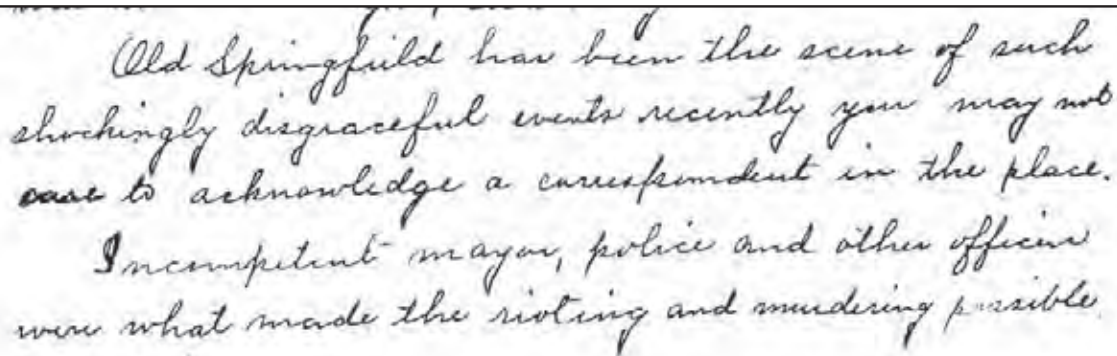 Old Springfield has been the scene of such
shockingly disgraceful events recently you may not
care to acknowledge a correspondent in the place.
Incompetent mayor, police and other officers
were what made the rioting and murdering possible